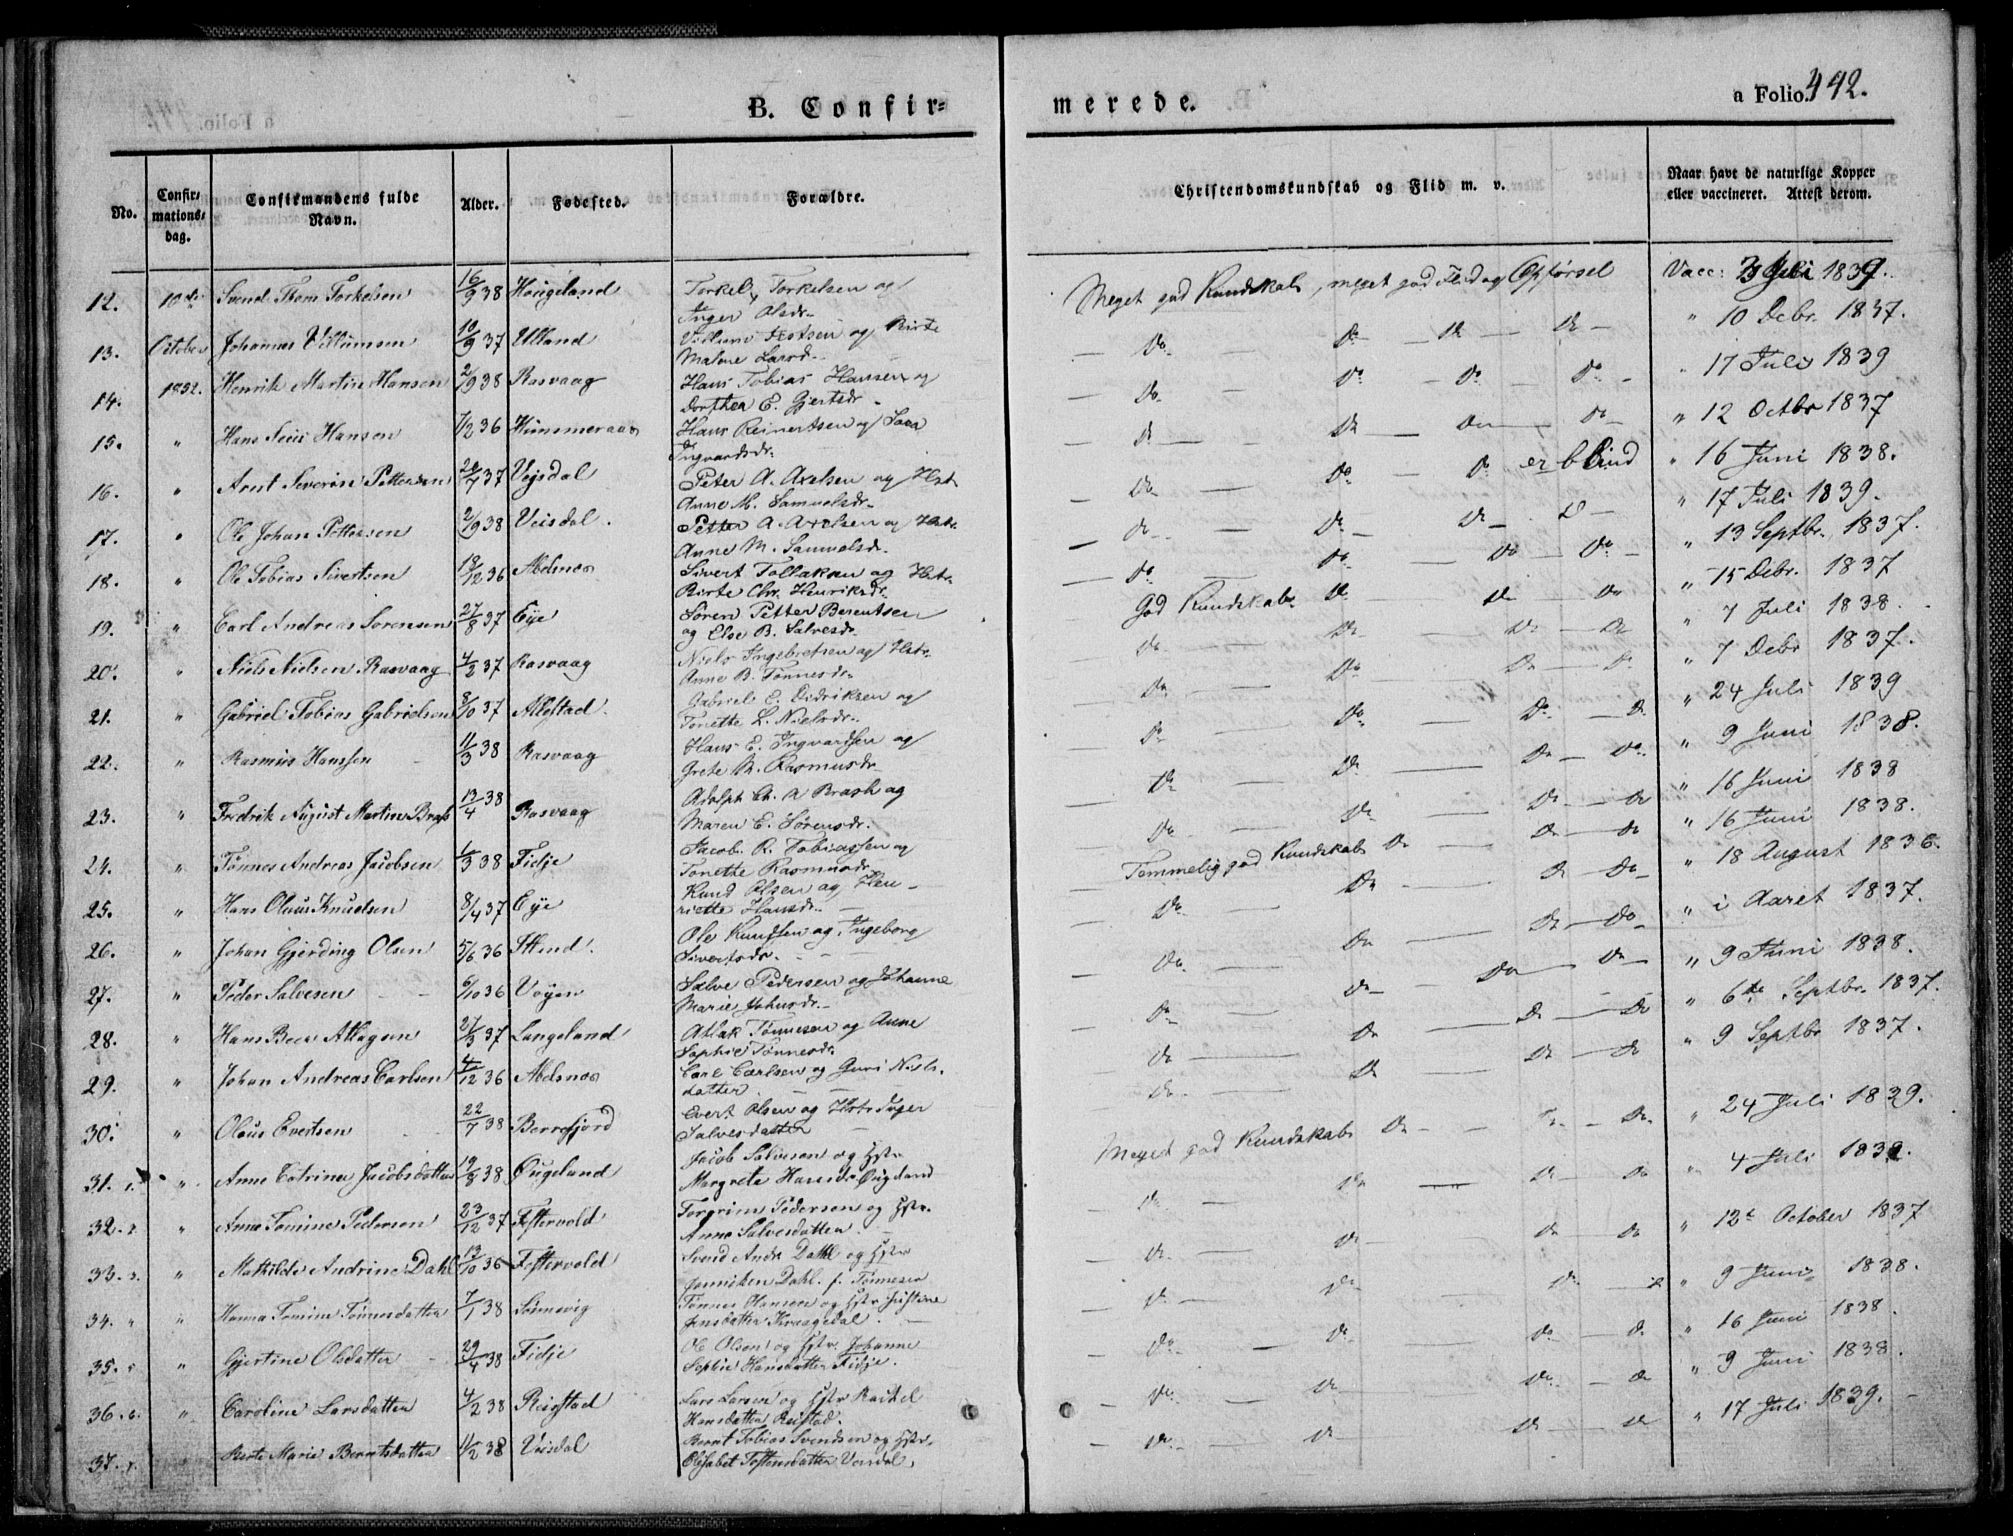 B. Confir=
merede.
a Folio 442.
No. Confirmations= dag. Confirmandens fulde Navn. Alder. Fødested. Forældre. Christendomskundskab og Flid m. v. Naar havt de naturlige Kopper eller vaccineret. Attest derom.
12. 10de Svend Thom Torkelsen 16/9 38 Hougeland Torkel Torkelsen og Meget god Kundskab, meget god Flid og Opførsel Vacc: Juli 1839.
Inger Olsdr.
13. October Johannes Villumsen 10/9 37 Ulland Villum Tostsen og Birte Do Do Do Do " 10 Debr. 1837.
Malene Larsd.
14. 1852. Henrik Martin Hansen 2/9 38 Rasvaag Hans Tobias Hansen og Do Do Do Do " 17 Juli 1839
Dorthea E. Gjertsdr.
15. " Hans Hansen 1/2 36 Hummeraas Hans Reinertsen og Sara Do Do Do Do " 12 Octbr 1837
Ingvardsdr.
16. " Arnt Severin Pettersen 26/7 37 Vejsdal Peter A. Axelsen og Hst. Do Do Do er blind " 16 Juni 1838.
Anne M. Samuelsdr.
17. " Ole Johan Pettersen 2/9 38 Veisdal. Petter A. Axelsen og Hst. Do Do Do Do " 17 Juli 1839.
Anne M. Samuelsdr.
18. " Ole Tobias Sivertsen 12/12 36 Abelsnes Sivert Tollaksen og Hst. Do Do Do Do " 13 Septbr. 1837.
Birte Chr. Henriksdr.
19. " Carl Andreas Sørensen 27/8 37 Eye Søren Petter Berentsen God Kundskab. Do Do Do " 15 Debr. 1837
og Else B. Salvesdr.
20. " Niels Nielsen Rasvaag 4/2 37 Rasvaag Niels Ingebretsen og Hst. Do Do Do Do " 7 Juli 1838.
Anne B. Tønnesdr.
21. " Gabriel Tobias Gabrielsen 8/10 37 Allestad. Gabriel E. Didriksen og Do Do Do Do " 7 Debr 1837.
Tonette L. Nielsdr.
22. " Rasmus Hanssen 11/3 38 Rasvaag Hans E. Ingvardsen og Do Do Do Do " 24 Juli 1839
Grete M. Rasmusdr.
23. " Fredrik August Martin Brash 13/4 38 Rasvaag Adolph Ch. a Brash og Do Do Do Do " 9 Juni 1838.
Maren E. Sørensdr.
24. " Tønnes Andreas Jacobsen 1/3 38 Fidje Jacob R. Tobiassen og Temmelig god Kundskab Do Do Do " 16 Juni 1838
Tonette Rasmusdr.
" 16 Juni 1838.
25. " Hans Olaus Knudsen 8/4 37 Eye Knud Olsen og Hen- Do Do Do Do " 18 August 1836.
riette Hansdr.
26. " Johan Gjerding Olsen 5/6 36 Ole Knudsen og Ingeborg Do Do Do Do " i Aaret 1837.
Sivertsdr.
27. " Peder Salvesen 6/10 36 Vøyen Salve Pedersen og Johanne Do Do Do Do " 9 Juni 1838.
Marie Johnsdr.
28. " Hans Beer Atlagsen 27/3 37 Langeland Atlak Tønnesen og Anne Do Do Do Do " 6te Septbr. 1837.
Sophie Tønnesdr.
29. " Johan Andreas Carlsen 4/12 36 Abelsnes Carl Carlsen og Guri Niels. Do Do " 9 Septbr 1837.
datter
30. " Olaus Evertsen 22/7 38 Berrefjord Evert Olsen og Hstr Inger Meget god Kundskab Do Do Do " 24 Juli 1839.
Salvesdatter
31. " Anne Catrine Jacobsdatter 19/8 38 Øugeland Jacob Salvesen og Hstr Do Do Do Do " 4 Juli 1839.
Margrete Hansdr Øugeland
32. " Anne Tomine Pedersen 23/12 37 Festervold Torgrim Pedersen og Hstr. Do Do Do Do " 12te October 1837
Anna Salvesdatter
33. " Mathilde Andrine Dahl 13/10 36 Festervold Svend Andr. Dahl og Hstr Do Do Do Do " 9 Juni 1838.
Jenniken Dahl. f. Tønnesen
34. " Hanna Tomine Tønnesdatter 7/1 38 Sønnevig Tønnes Hansen og Hstr Justine Do Do Do Do " 16 Juni 1838.
Jensdatter Kraagedal.
35. " Gjertine Olsdatter 29/4 38 Fidje Ole Olsen og Hstr. Johanne Do Do Do Do " 9 Juni 1838.
Sophie Hansdatter Fidje.
36. " Caroline Larsdatter 4/2 38 Reistad Lars Larsen og Hstr Rachel Do Do Do Do " 17 Juli 1839.
Hansdatter Reistad.
37. Birte Marie Berntsdatter 4/2 38 Veisdal Bernt Tobias Svendsen og Hstr.
Elisabet Tostensdatter Veisdal.